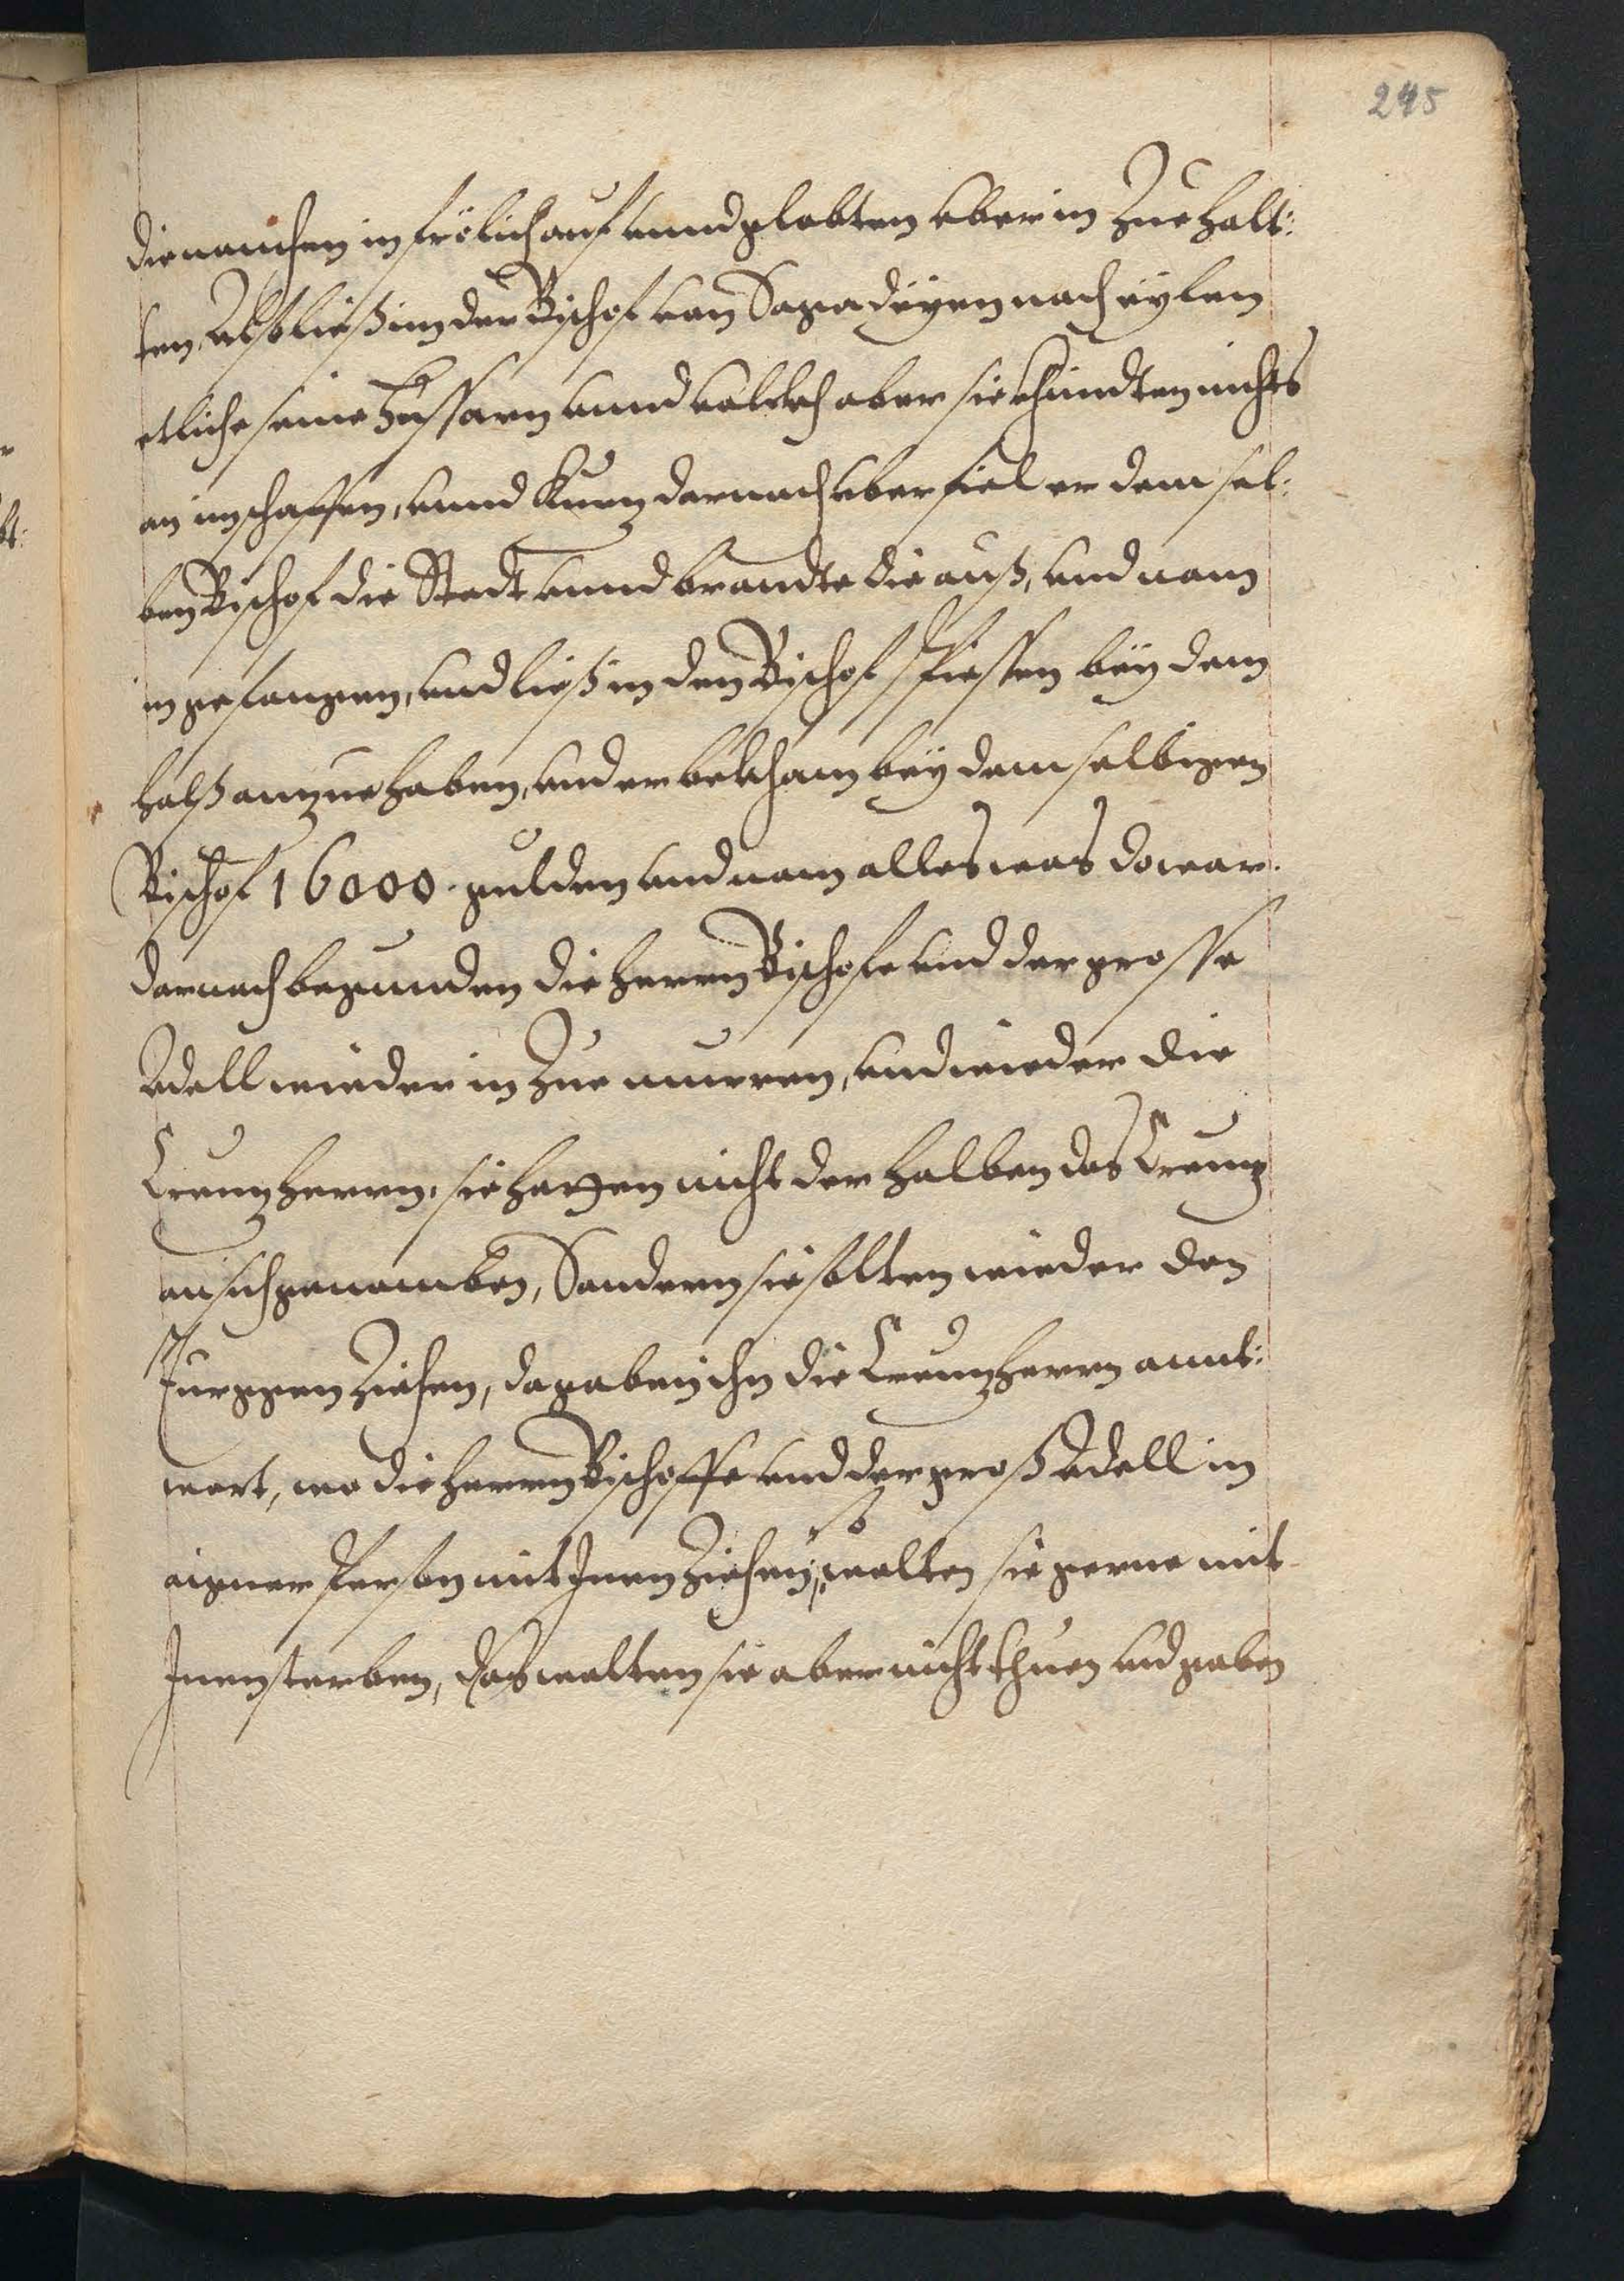 245
die namen in frölich auf unnd globten uber in Zue halt:
ten, Also ließ im der Bischof von Sagadiyen nach eylen
etliche seine Hussarn unnd volckh aber sie khundten nichts
an im schaffen, unnd Kurz darnach uberfiel er dem sel:
ben Bischof die Stadt unnd brandte die auß, und nam
in gefangen, und ließ in den Bischof Spiessen bey dem
halß anzuehaben, und er bekham bey dem selbigen
Bischof 16000. gulden und nam alles was do war.
darnach begunden die herrn Bischofe und der grosse
Adell wieder in Zue murren, und wieder die
Creuzherrn, sie hetten nicht der halben das Creuz
an sich genomben, Sondern sie solten wieder den
Turggen Ziehen, do gaben ihn die Creuzherrn annt:
wort, wo die herrn Bischoffe und der groß Adell in
aigner Person mit Inen Ziehen, so wolten sie gerne mit
Inen sterben, das wolten sie aber nicht thuen und gaben